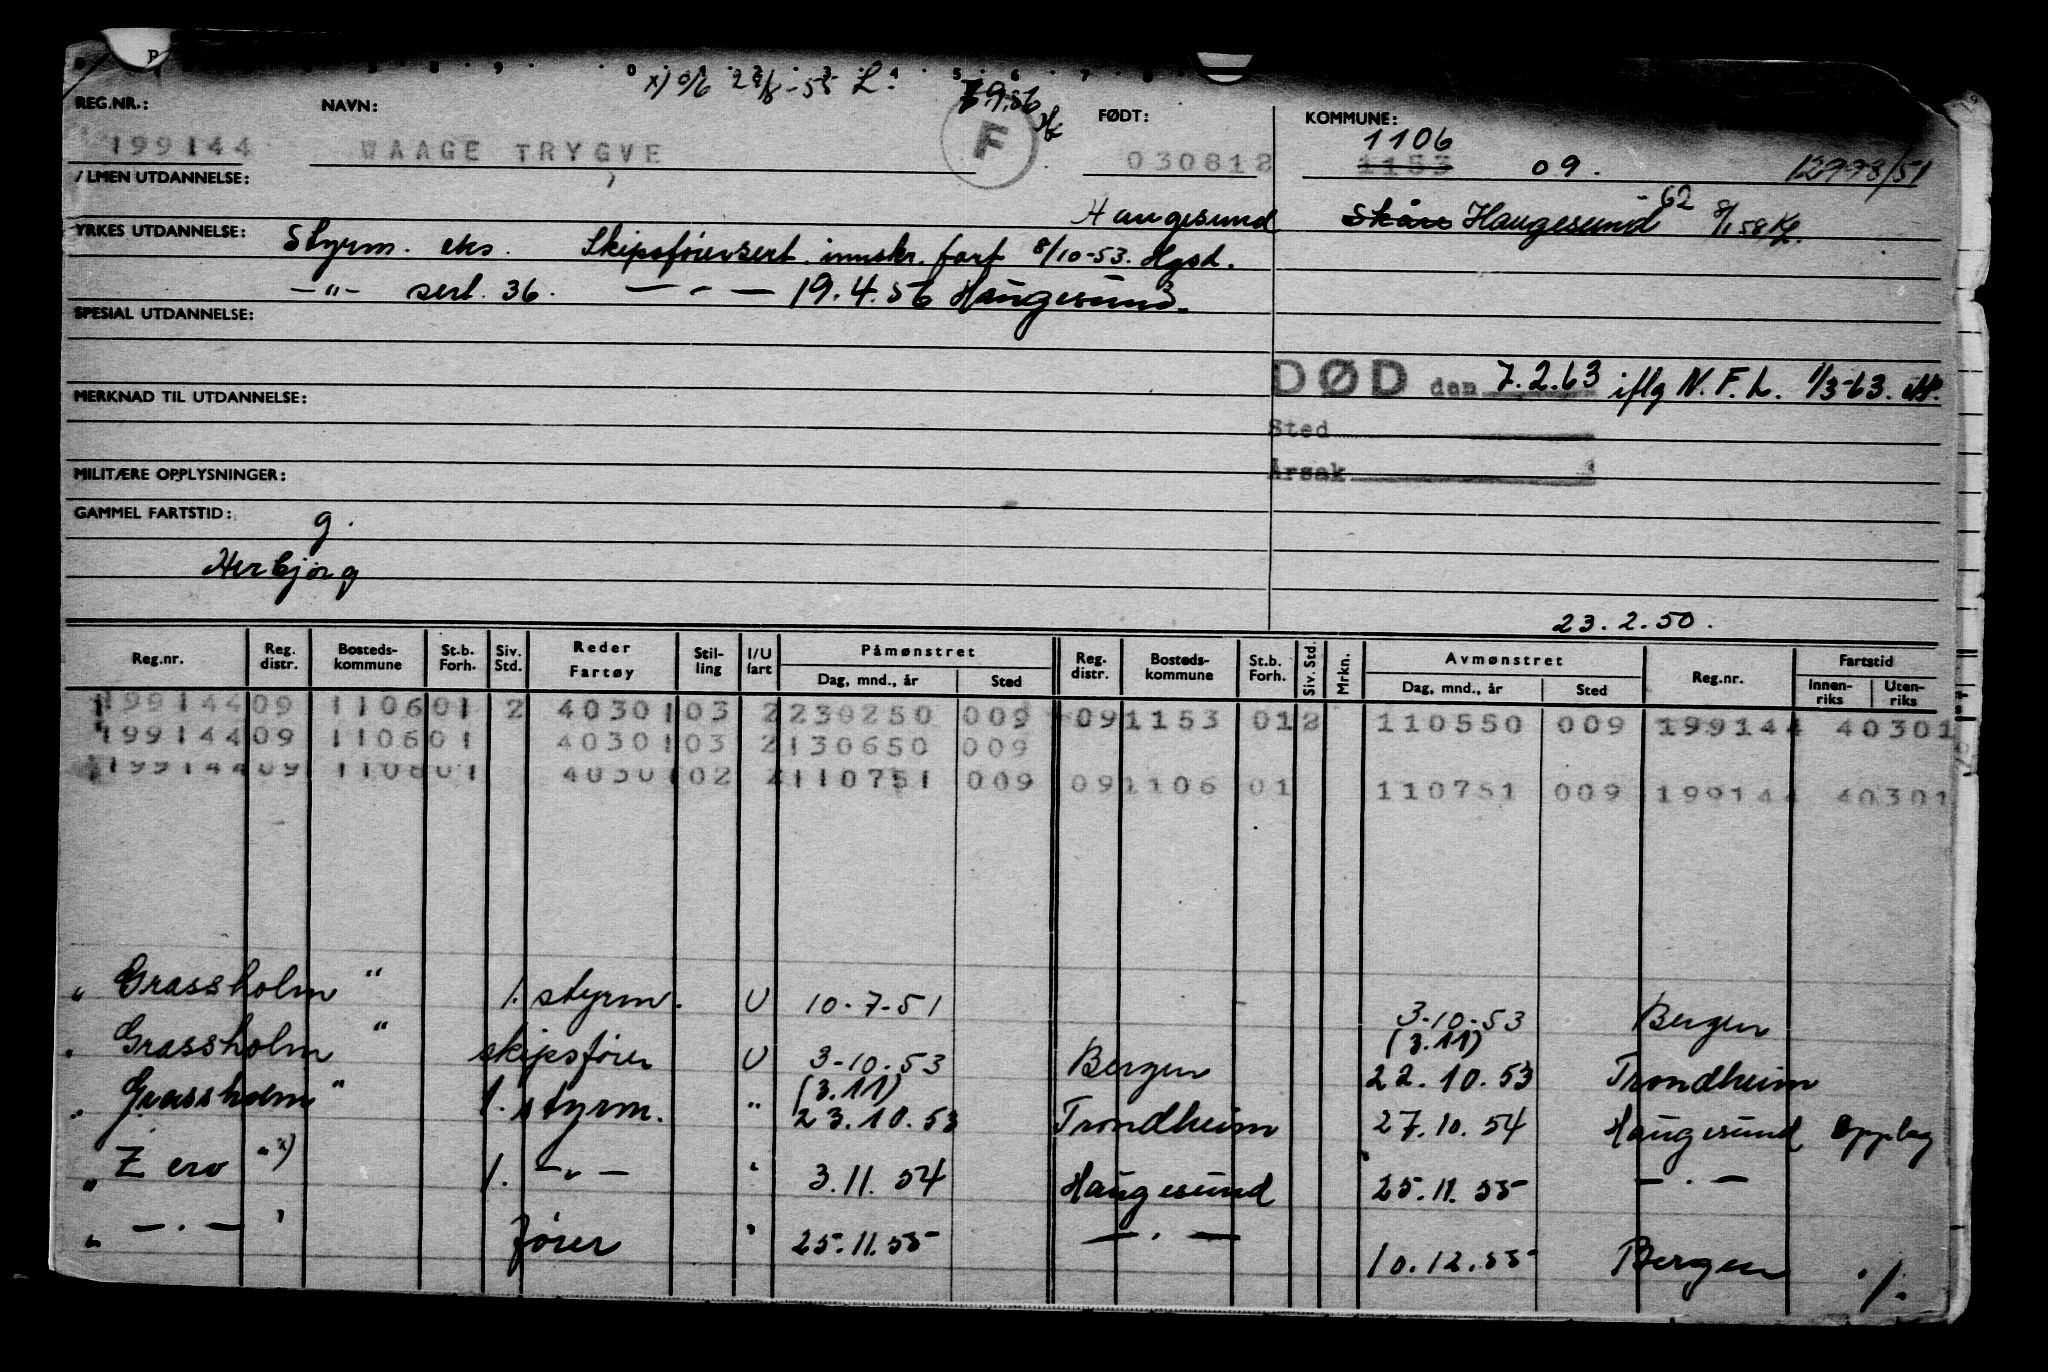 x) 7.9.56
REG.NR.: NAVN: FØDT: KOMMUNE:
F
1106
199144 WAAGE TRYGVE 030812 1153 09. 12998/51
/LMEN UTDANNELSE:
Haugesund Skåre Haugesund -62 8/1 58
YRKES UTDANNELSE: Styrm. eks. Skipsførersert. innskr. fart 8/10-53. Hgsd.
—"— sert. 36. — " — 19.4.56 Haugesund.
SPESIAL UTDANNELSE:
DØD den 7.2.63 iflg N.F.L. 1/3-63.
MERKNAD TIL UTDANNELSE:
Sted
MILITÆRE OPPLYSNINGER: Årsak
GAMMEL FARTSTID: g.
Herbjørg
23.2.50.
Reg.nr. Reg. distr. Bosteds-kommune St.b. Forh. Siv. Std. Reder Fartøy Stil-ling I/U fart Påmønstret Dag, mnd., år Sted Reg. distr. Bosteds-kommune St.b. Forh. Siv. Std. Mrkn. Avmønstret Dag, mnd., år Sted Reg.nr. Fartstid Innen-riks Uten-riks
199144 09 1106 01 2 40301 03 2 230250 009 09 1153 01 2 110550 009 199144 40301
199144 09 1106 01 40301 03 2 130650 009
199144 09 1106 01 40301 02 2 110751 009 09 1106 01 110751 009 199144 40301
" Grassholm " 1. styrm. U 10-7-51 3-10-53 Bergen
(3.11)
" Grassholm " skipsfører U 3-10.53 Bergen 22.10.53 Trondheim
(3.11)
" Grassholm " 1. styrm. " 23.10.53 Trondheim 27.10.54 Haugesund Opplag
" Zero " x) 1. —"— " 3.11.54 Haugesund 25.11.55 — " —
" — " — " fører " 25.11.55 — " — 10.12.55 Bergen ./.